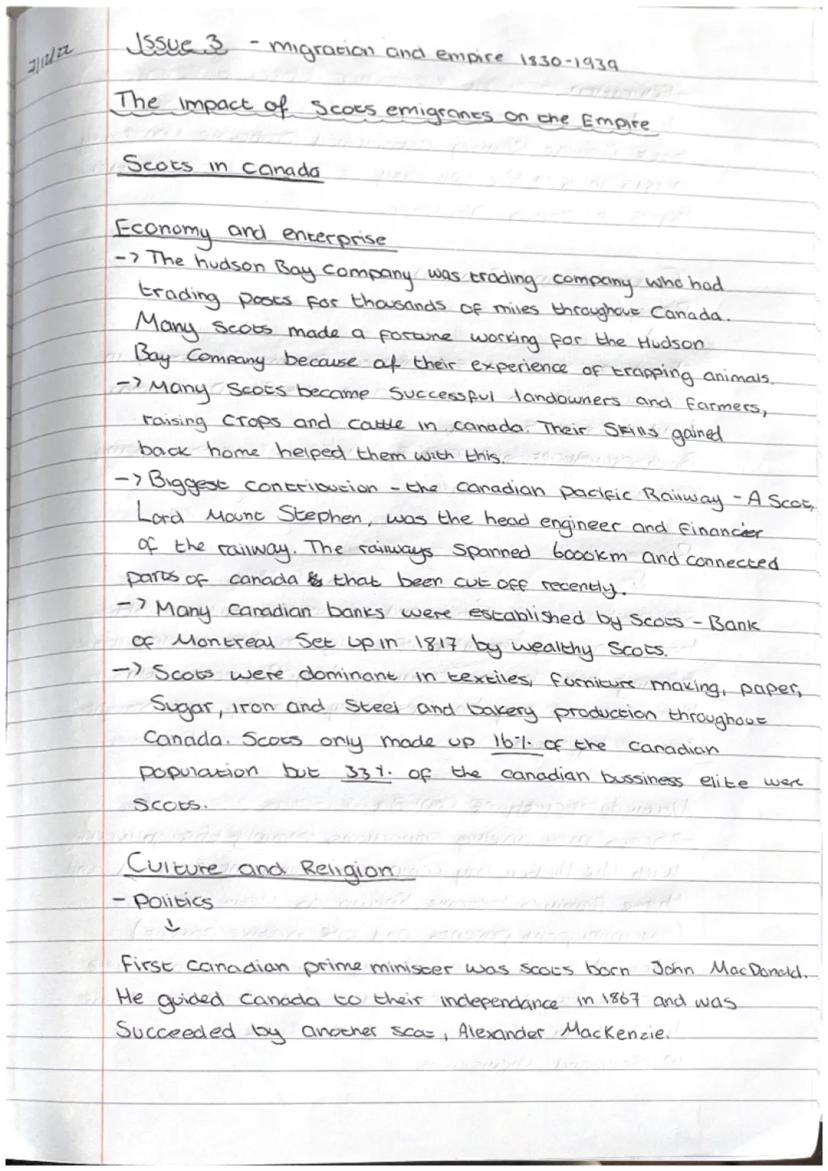 7/12/22
Issue 3 - migration and empire 1830-1939
The impact of Scots emigrants on the Empire
Scots in Canada
Economy and enterprise
-> The hudson Bay Company was trading company who had
trading posts for thousands of miles throughout Canada.
Many Scots made a fortune working for the Hudson
Bay Company because of their experience of trapping animals.
-> Many Scots became successful landowners and farmers,
raising crops and cattle in canada. Their skills gained
back home helped them with this.
-> Biggest contribution - the Canadian pacific Railway - A Scot,
Lord Mount Stephen, was the head engineer and financier
of the railway. The railways spanned 6000km and connected
parts of canada that been cut off recently.
-> Many Canadian banks were established by Scots - Bank
of Montreal set up in 1817 by wealthy Scots.
-> Scots were dominant in textiles, furniture making, paper,
Sugar, iron and steel and bakery production throughout
Canada. Scots only made up 16% of the Canadian
population but 33% of the Canadian bussiness elite were
Scots.
Culture and Religion
- Politics
↓
First Canadian prime minister was scots born John MacDonald.
He guided Canada to their independance in 1867 and was
succeeded by another scot, Alexander Mackenzie.